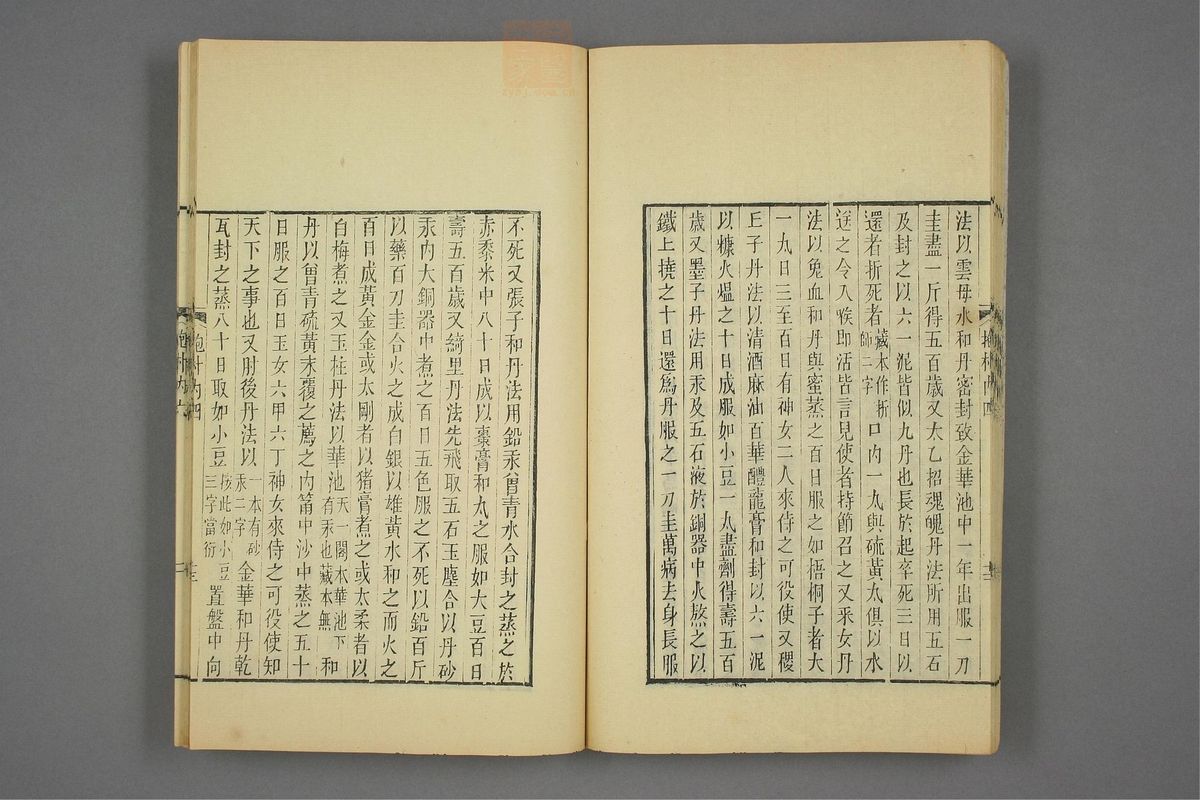 法以雲母水和丹密封致金華池中一年出服一刀
圭盡一斤得五百歲又太乙招魂魄丹法所用五石
及封之以六一泥皆似九丹也長於起卒死三日以
還者折死者藏本作折師二字口內一丸與硫黃丸俱以水
送之令入喉即活皆言見使者持節召之又釆女丹
法以兔血和丹與蜜蒸之百日服之如梧桐子者大
一丸日三至百日有神女二人來侍之可役使又稷
丘子丹法以清酒麻油百華醴龍膏和封以六一泥
以糠火熅之十日成服如小豆一丸盡劑得壽五百
歲又墨子丹法用汞及五石液於銅器中火熬之以
鐵上撓之十日還爲丹服之一刀圭萬病去身長服
不死又張子和丹法用鉛汞曾青水合封之蒸之於
赤黍米中八十日成以棗膏和丸之服如大豆百日
壽五百歲又綺里丹法先飛取五石玉塵合以丹砂
汞內大銅器中煮之百日五色服之不死以鉛百斤
以藥百刀圭合火之成白銀以雄黃水和之而火之
百日成黃金金或太剛者以猪膏煮之或太柔者以
白梅煮之又玉柱丹法以華池天一閣本華池下有汞也藏本無和
丹以曾青硫黃末覆之薦之內筩中沙中蒸之五十
日服之百日玉女六甲六丁神女來侍之可役使知
天下之事也又肘後丹法以一本有砂汞二字金華和丹乾
瓦封之蒸八十日取如小豆按此如小豆三字當衍置盤中向